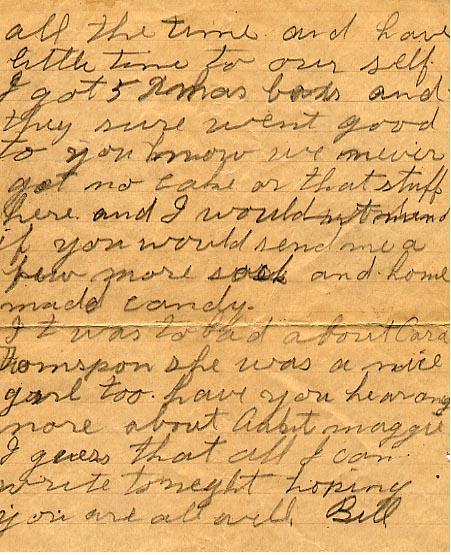 all the time and have
little time to our self
I got 5 Xmas boxs and
they sure went good
to you know we never
get no cake or that stuff
here. and I would not mind
if you would send me a
few more sock and home
made candy.
It was to bad about Cora
tomspon she was a nice
gurl too. have you hear any
more about Aunt maggie
I guess that all I can
write tonight hoping
you are all well. Bill